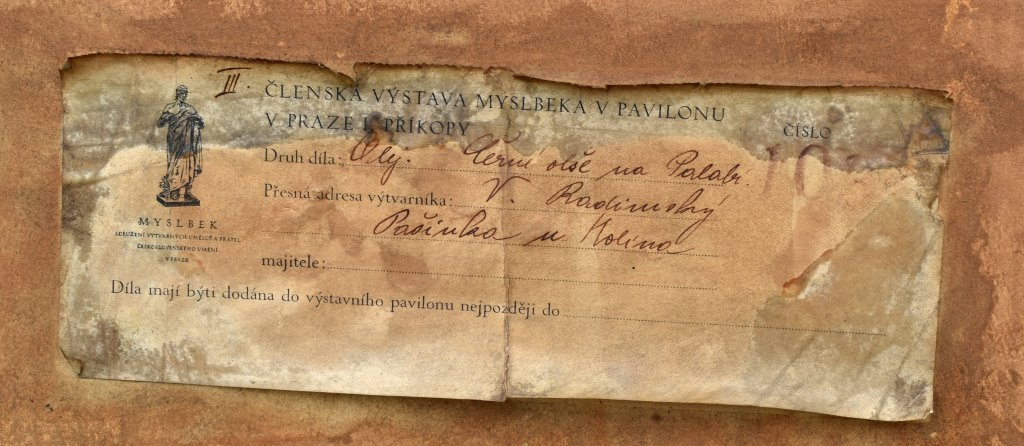 III. ČLENSKÁ VÝSTAVA MYSLBEKA V PAVILONU
V PRAZE I. PŘÍKOPY
ČÍSLO
Druh díla: Olej. Černé olše na Polabí.
Přesná adresa výtvarníka: V. Radimský
Pašinka u Kolína
majitele:
Díla mají býti dodána do výstavního pavilonu nejpozději do
MYSLBEK
SDRUŽENÍ VÝTVARNÝCH UMĚLCŮ A PŘÁTEL
ČESKOSLOVENSKÉHO UMĚNÍ
V PRAZE